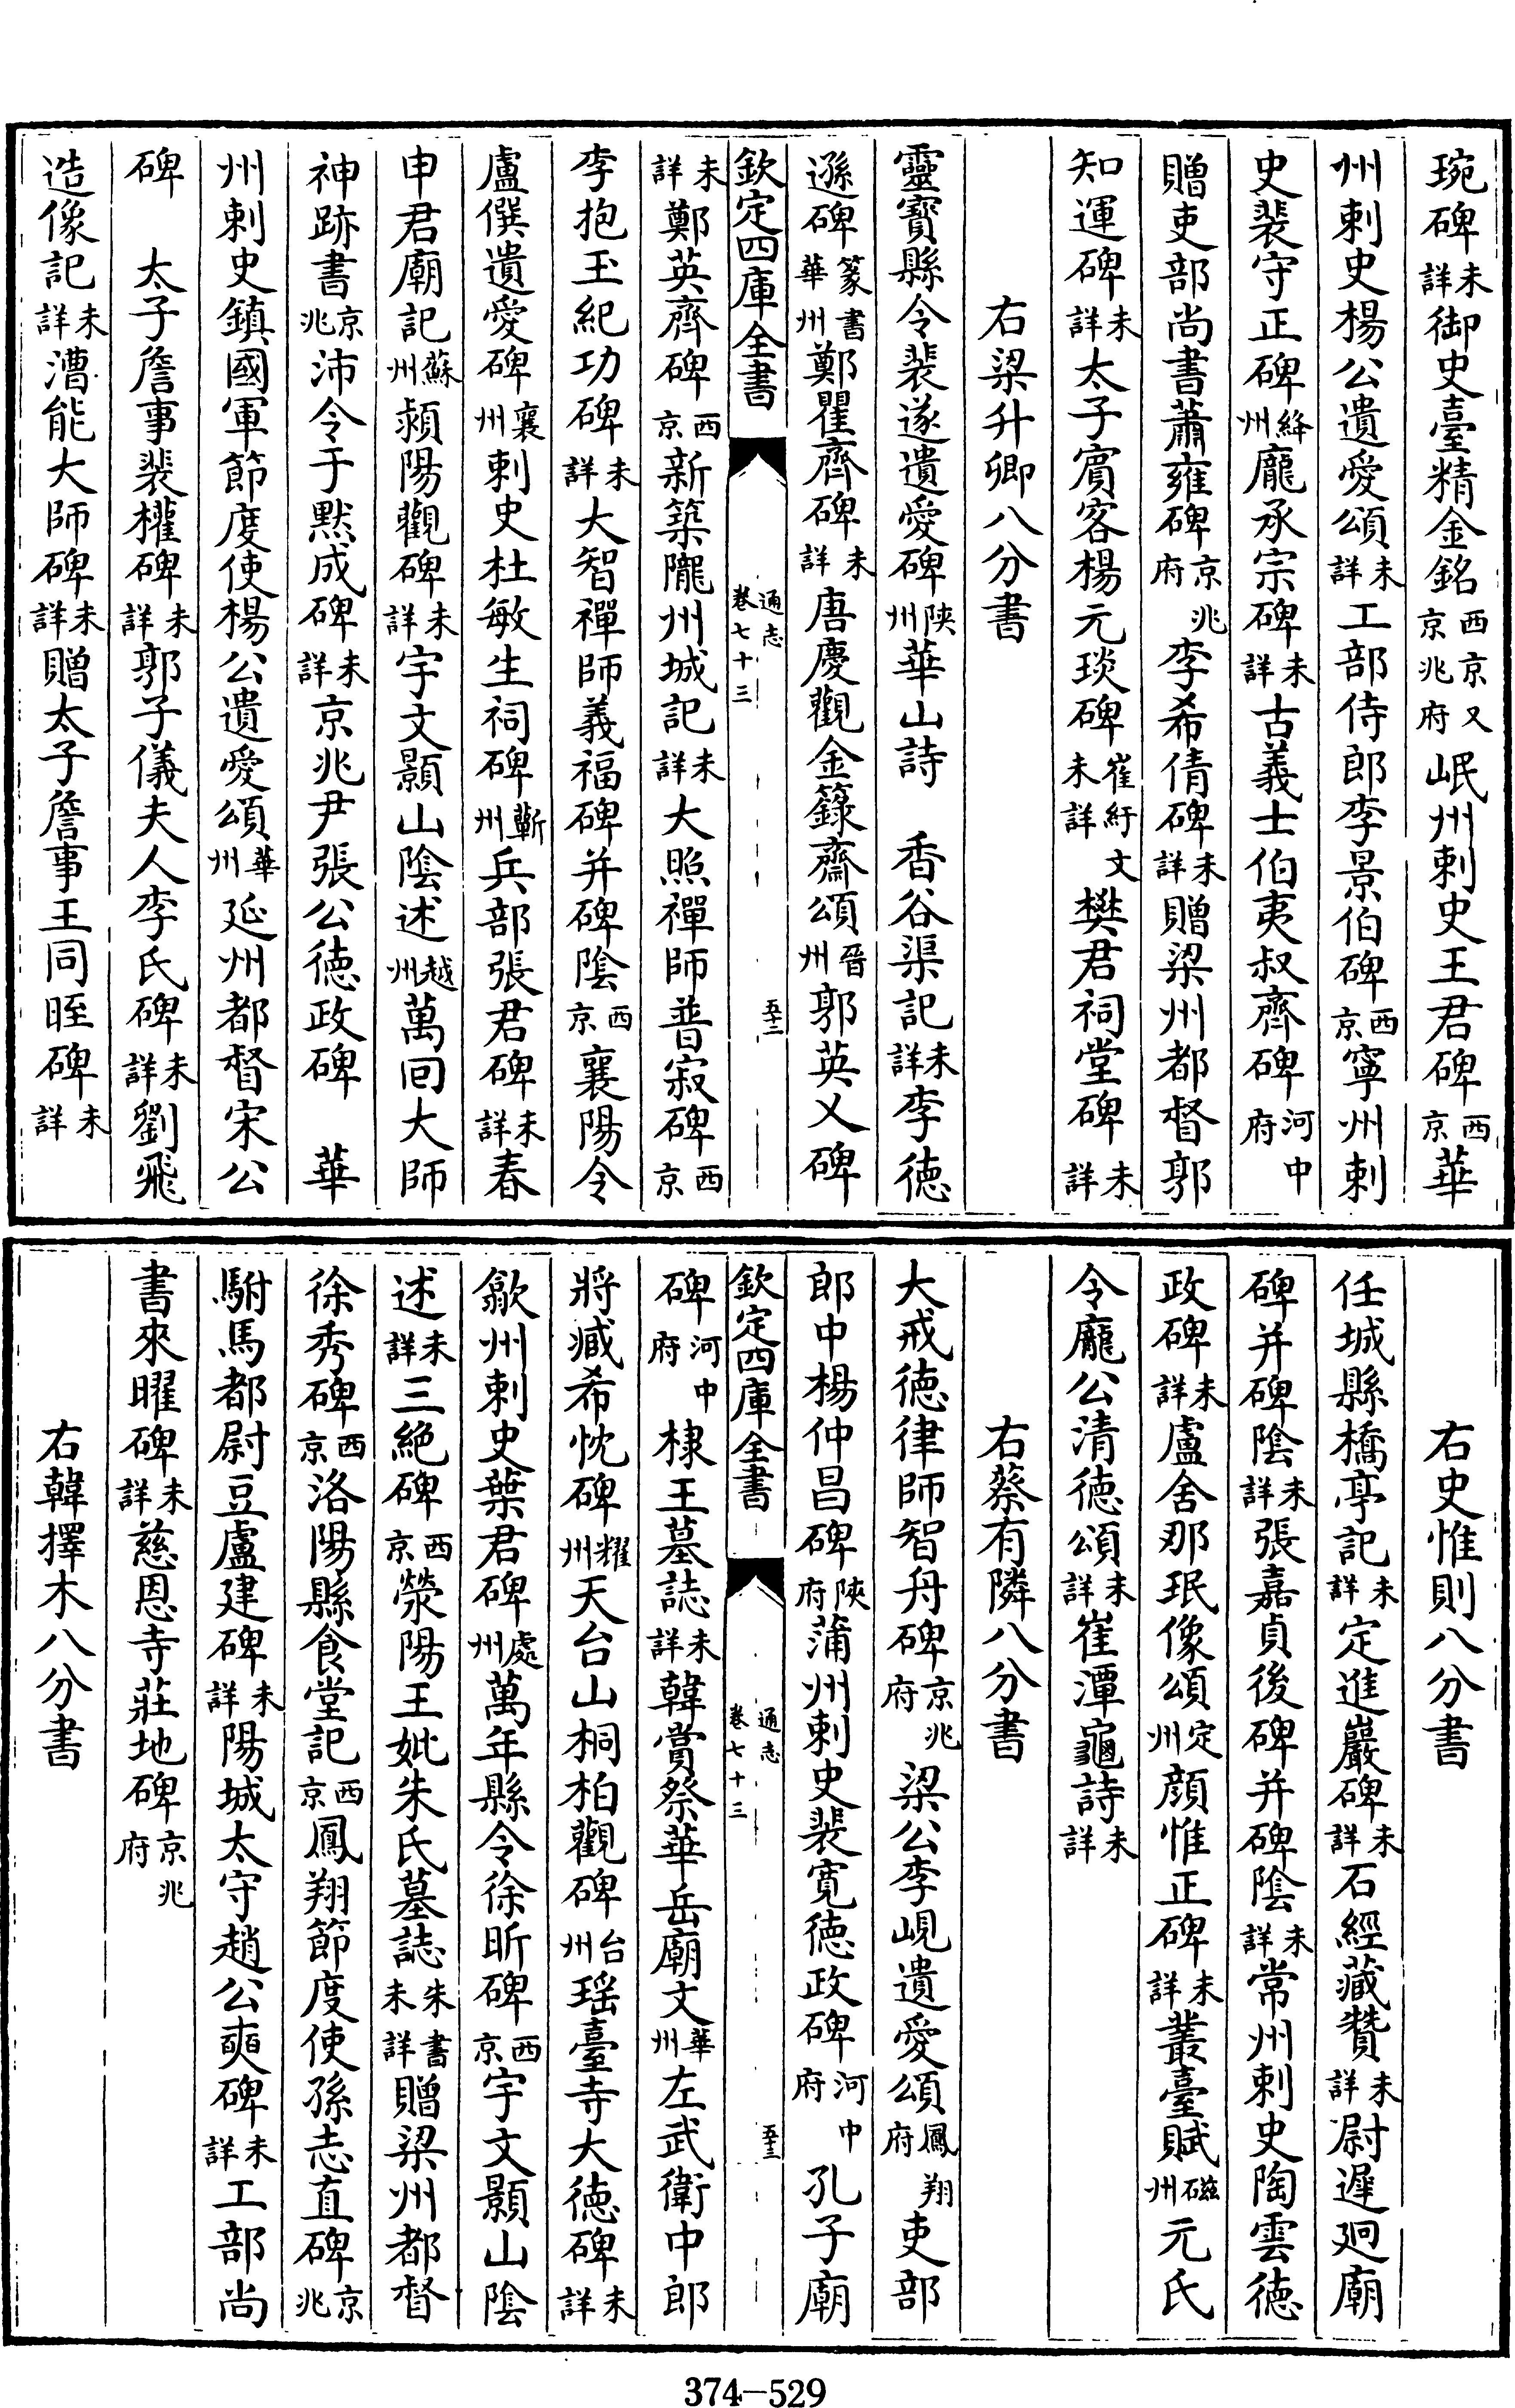 琬碑未詳御史臺精金銘西京又京兆府岷州刺史王君碑西京華
州刺史楊公遺愛頌未詳工部侍郎李景伯碑西京寧州刺
史裴守正碑絳州龐承宗碑未詳古義士伯夷叔齊碑河中府
贈吏部尚書蕭雍碑京兆府李希倩碑未詳贈梁州都督郭
知運碑未詳太子賓客楊元琰碑崔紆文未詳樊君祠堂碑未詳
右梁升卿八分書
靈寶縣令裴遂遺愛碑陝州華山詩　香谷渠記未詳李德
遜碑篆書華州鄭瞿齊碑未詳唐慶觀金籙齋頌晉州郭英乂碑
欽定四庫全書　通志卷七十三　五十二
未詳鄭英齊碑西京新築隴州城記未詳大照禪師普寂碑西京
李抱玉紀功碑未詳大智禪師義福碑并碑陰西京襄陽令
盧僎遺愛碑襄州刺史杜敏生祠碑蘄州兵部張君碑未詳春
申君廟記蘇州潁陽觀碑未詳宇文顥山陰述越州萬回大師
神跡書京兆沛令于默成碑未詳京兆尹張公德政碑　華
州刺史鎮國軍節度使楊公遺愛頌華州延州都督宋公
碑　太子詹事裴權碑未詳郭子儀夫人李氏碑未詳劉飛
造像記未詳漕能大師碑未詳贈太子詹事王同晊碑未詳
右史惟則八分書
任城縣橋亭記未詳定進巖碑未詳石經藏贊未詳尉遲迥廟
碑并碑陰未詳張嘉貞後碑并碑陰未詳常州刺史陶雲德
政碑未詳盧舍那珉像頌定州顏惟正碑未詳叢臺賦磁州元氏
令龐公清德頌未詳崔潭龜詩未詳
右蔡有隣八分書
大戒德律師智舟碑京兆府梁公李峴遺愛頌鳳翔府吏部
郎中楊仲昌碑陝府蒲州刺史裴寬德政碑河中府孔子廟
欽定四庫全書　通志卷七十三　五十三
碑河中府棣王墓誌未詳韓賞祭華岳廟文華州左武衛中郎
將臧希忱碑耀州天台山桐柏觀碑台州瑤臺寺大德碑未詳
歙州刺史葉君碑處州萬年縣令徐昕碑西京宇文顥山陰
述未詳三絕碑西京滎陽王妣朱氏墓誌朱書未詳贈梁州都督
徐秀碑西京洛陽縣食堂記西京鳳翔節度使孫志直碑京兆
駙馬都尉豆盧建碑未詳陽城太守趙公奭碑未詳工部尚
書來曜碑未詳慈恩寺莊地碑京兆府
右韓擇木八分書
374—529